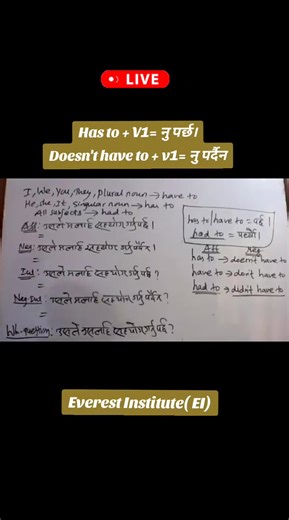 LIVE
Has to + V1= नु पर्छ।
Doesn't have to + v1= नु पर्दैन
I, We, You, They, Plural noun → have to
He, she, It, Singular noun → has to
All subjects → had to
has to / have to = पर्छ।
had to = पर्थ्यो।
Aff: उसले मलाई सहयोग गर्नुपर्छ।
=
Neg: उसले मलाई सहयोग गर्नु पर्दैन।
=
Int: उसले मलाई सहयोग गर्नु पर्छ?
=
Neg Int: उसले मलाई सहयोग गर्नु पर्दैन?
=
Wh-question: उसले मलाई सहयोग गर्नु पर्छ?
Aff Neg
has to → doesn't have to
have to → don't have to
had to → didn't have to
Everest Institute( EI)